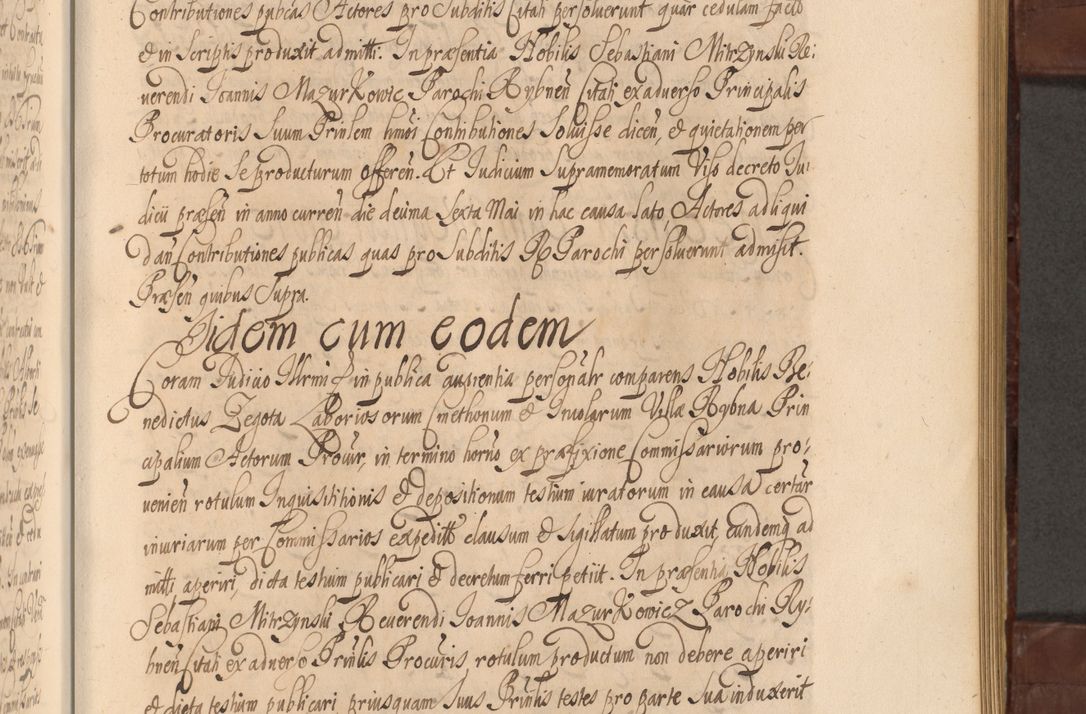 Contributiones publicas Actores pro Subditis Citati persolverunt quar cedulam facto
& in Scriptis produxit admitti. In præsentia Nobilis Sebastiani Mitrzynski Re:
verendi Joannis MazurKowic Parochi Rybnen Citati ex adverso Principalis
Procuratoris Suum Prinlem hmoi Contributiones Solvisse dicen, & quietationem per
totum hodie Se producturum offeren. Et Judicium Supramemoratum Viso decreto Ju:
dicii præsen in anno curren die decima Sexta Mai in hac causa lato, Actores ad liqui
dan Contributiones publicas quas pro Subditis R Parochi persolverunt admisit.
Præsen quibus Supra.
Iidem cum eodem
Coram Judicio Illrmi in publica audientia personalr comparens Nobilis Be:
nedictus Zegota Laboriosorum Cmethonum & Incolarum Villæ Rybna Prin
cipalium Actorum Procur, in termino horno ex præfixione Commissariorum pro:
venien rotulum Inquisititionis & depositionum testium iuratorum in causa certar
iniuriarum per Commissarios expeditt clausum & sigillatum produxit, eundemq ad
mitti, aperiri, dicta testium publicari & decretum ferri petiit. In præsentia Nobilis
Sebastiani Mitrzynski Reverendi Joannis MazurKowicz Parochi Ry:
bnen Citati ex adverso Prinlis Procuris rotulum productum non debere aperiri
et dicta testium publicari, priusquam Suus Prinlis testes pro parte Sua induxerit